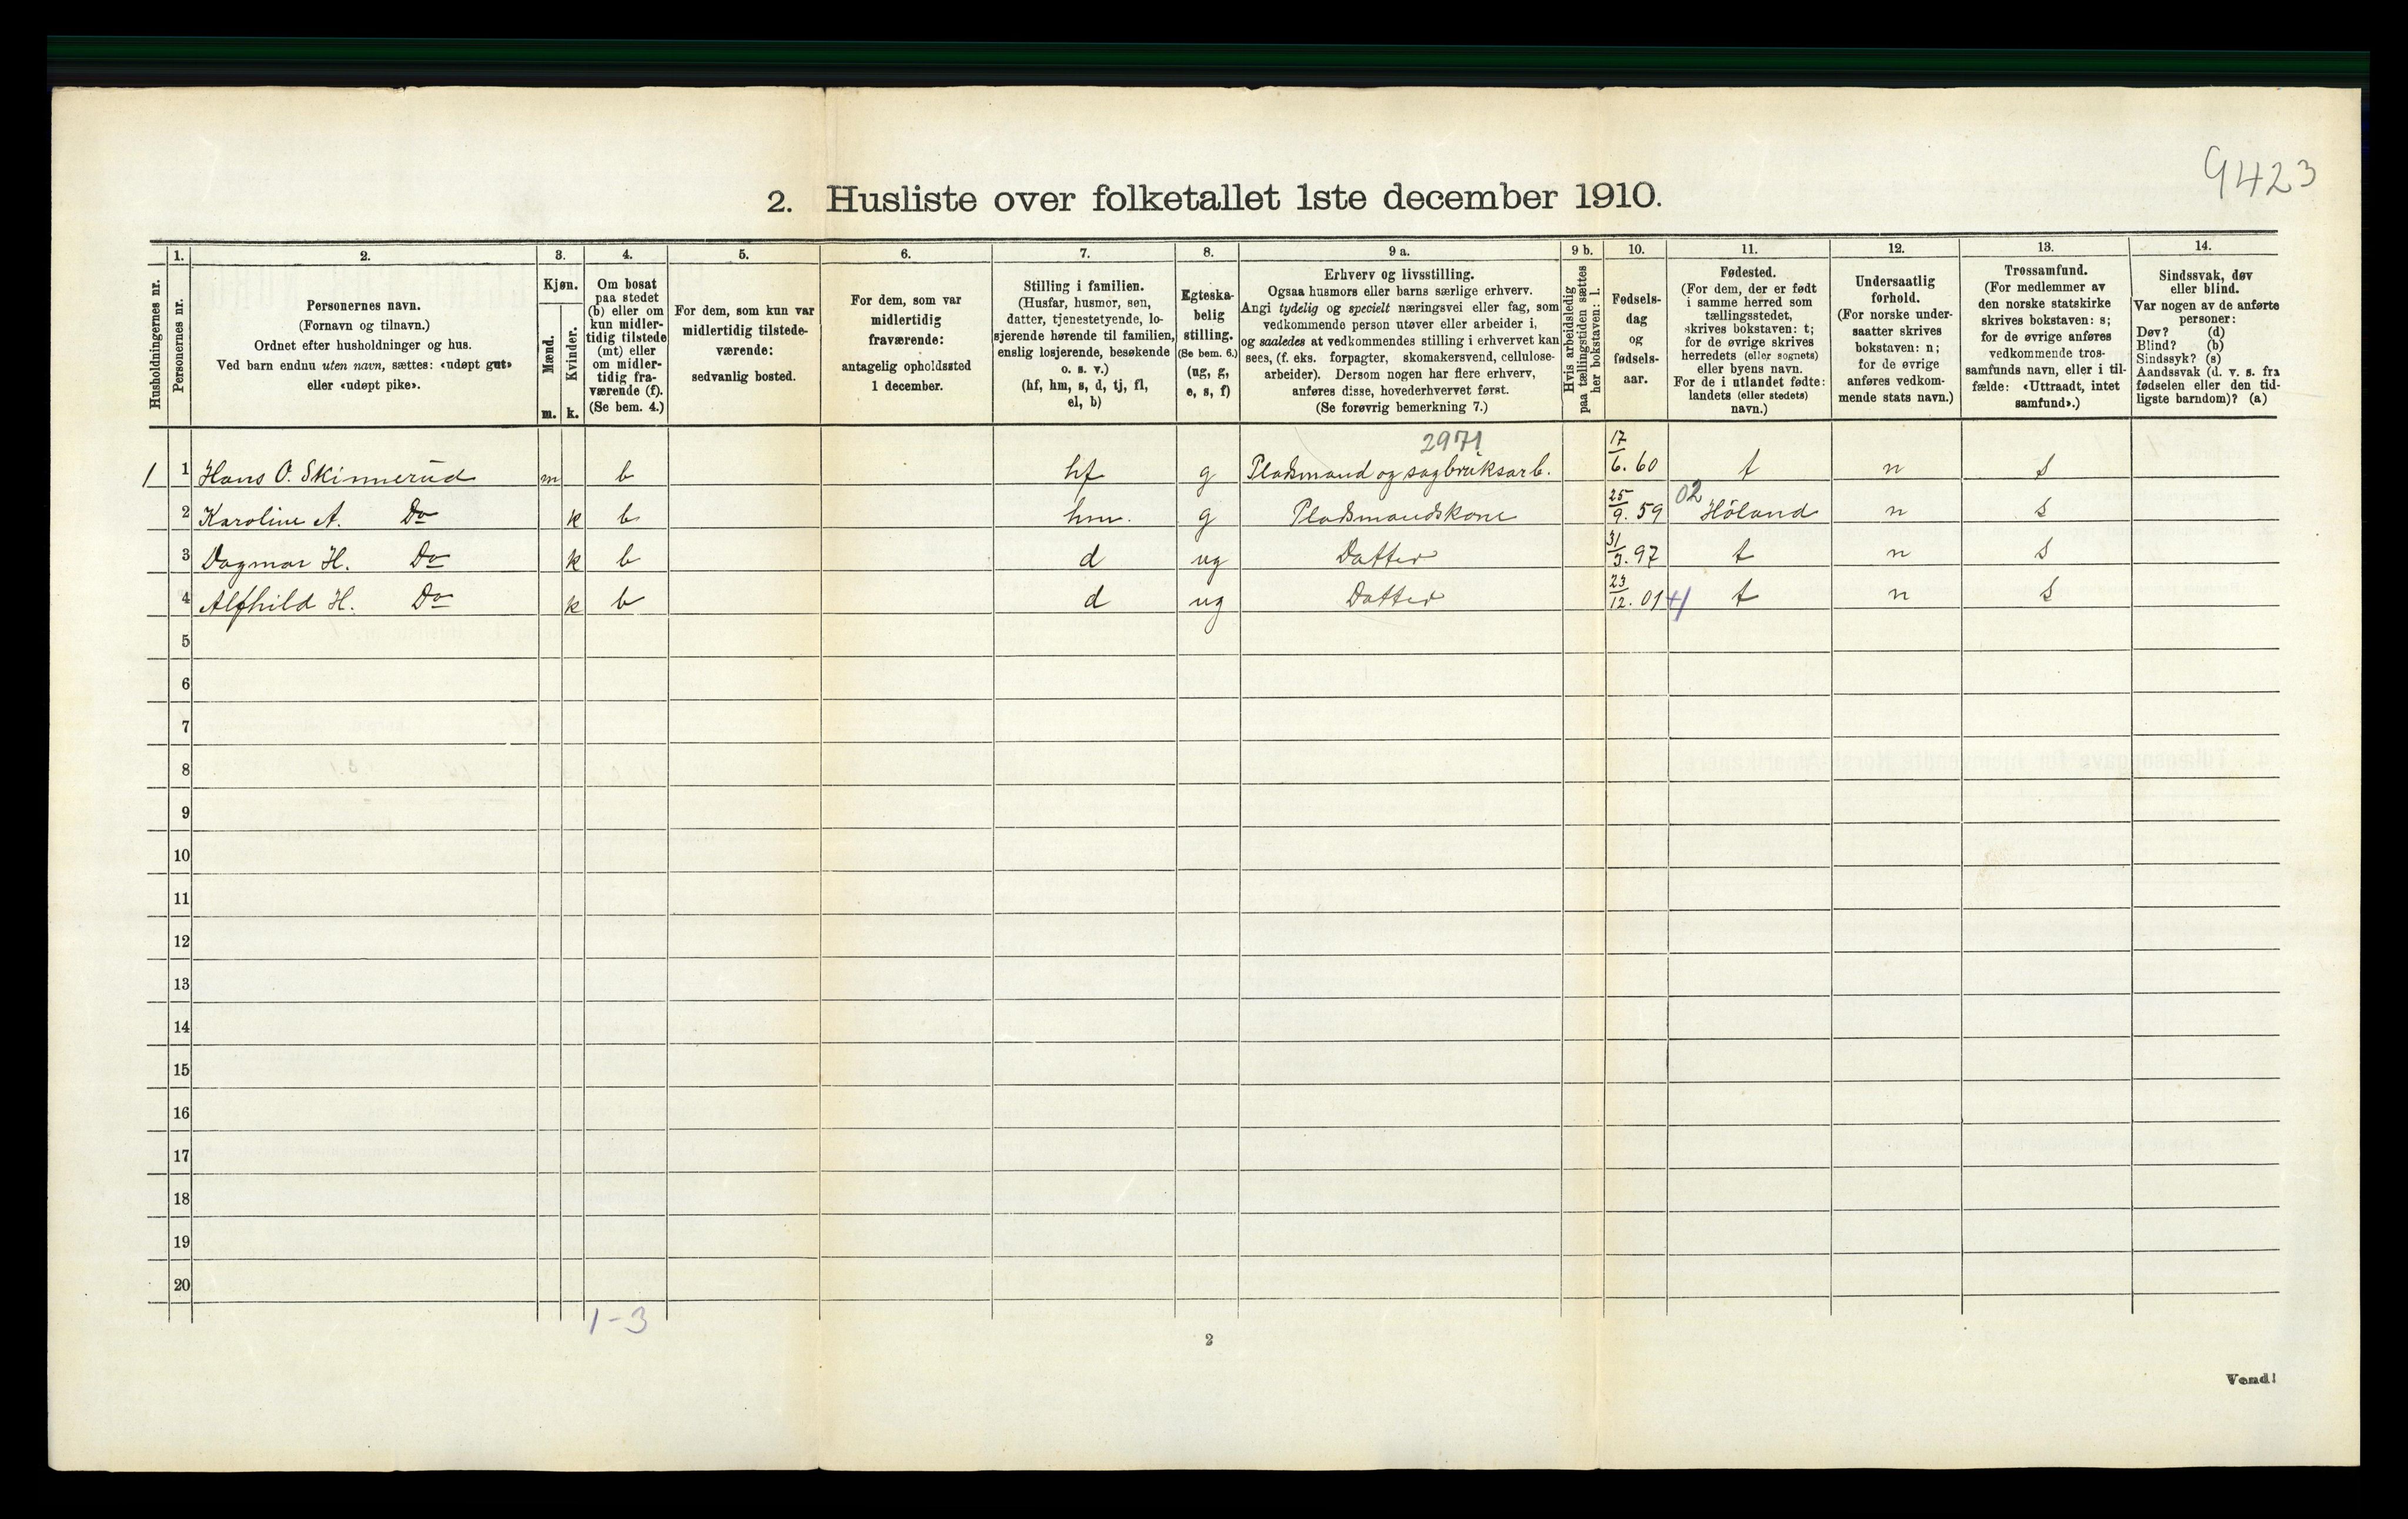 9423
2. Husliste over folketallet 1ste december 1910.
Husholdningernes nr.
1.
Personernes nr.
2.
Personernes navn.
(Fornavn og tilnavn.)
Ordnet efter husholdninger og hus.
Ved barn endnu uten navn, sættes: «udøpt gut»
eller «udøpt pike».
3.
Kjøn.
Mænd.
m.
Kvinder.
k.
4.
Om bosat
paa stedet
(b) eller om
kun midler-
tidig tilstede
(mt) eller
om midler-
tidig fra-
værende (f).
(Se bem. 4.)
5.
For dem, som kun var
midlertidig tilstede-
værende:
sedvanlig bosted.
6.
For dem, som var
midlertidig
fraværende:
antagelig opholdssted
1 december.
7.
Stilling i familien.
(Husfar, husmor, søn,
datter, tjenestetyende, lo-
sjerende hørende til familien,
enslig losjerende, besøkende
o. s. v.)
(hf, hm, s, d, tj, fl,
el, b)
8.
Egteska-
belig
stilling.
(Se bem. 6.)
(ug, g,
e, s, f)
9 a.
Erhverv og livsstilling.
Ogsaa husmors eller barns særlige erhverv.
Angi tydelig og specielt næringsvei eller fag, som
vedkommende person utøver eller arbeider i,
og saaledes at vedkommendes stilling i erhvervet kan
sees, (f. eks. forpagter, skomakersvend, cellulose-
arbeider). Dersom nogen har flere erhverv,
anføres disse, hovederhvervet først.
(Se forøvrig bemerkning 7.)
9 b.
Hvis arbeidsledig
paa tællingstiden sættes
her bokstaven: l.
10.
Fødsels-
dag
og
fødsels-
aar.
11.
Fødested.
(For dem, der er født
i samme herred som
tællingsstedet,
skrives bokstaven: t;
for de øvrige skrives
herredets (eller sognets)
eller byens navn.
For de i utlandet fødte:
landets (eller stedets)
navn.)
12.
Undersaatlig
forhold.
(For norske under-
saatter skrives
bokstaven: n;
for de øvrige
anføres vedkom-
mende stats navn.)
13.
Trossamfund.
(For medlemmer av
den norske statskirke
skrives bokstaven: s;
for de øvrige anføres
vedkommende tros-
samfunds navn, eller i til-
fælde: «Uttraadt, intet
samfund».)
14.
Sindssvak, døv
eller blind.
Var nogen av de anførte
personer:
Døv? (d)
Blind? (b)
Sindssyk? (s)
Aandssvak (d. v. s. fra
fødselen eller den tid-
ligste barndom)? (a)
2971
1 1 Hans O. Skinnerud m b hf g Pladsmand og sagbruksarb. 17/6. 60 t n s
02
2 Karoline A. Do k b hm. g Pladsmandskone 25/9. 59 Höland n s
3 Dagmar H. Do k b d ug Datter 31/3. 97 t n s
4 Alfhild H. Do k b d ug Datter 23/12. 01 t n s
5
6
7
8
9
10
11
12
13
14
15
16
17
18
19
20
1-3
2
Vend!